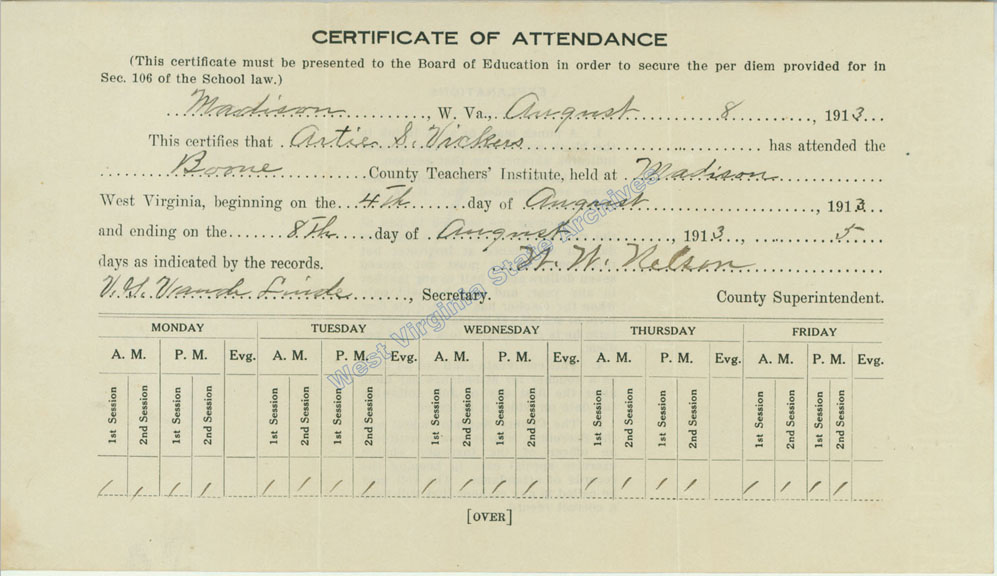 CERTIFICATE OF ATTENDANCE
(This certificate must be presented to the Board of Education in order to secure the per diem provided for in
Sec. 106 of the School law.)
Madison, W. Va., August 8, 1913
This certifies that Artie S. Vickers has attended the
Boone County Teachers' Institute, held at Madison
West Virginia, beginning on the 4th day of August, 1913
and ending on the 8th day of August, 1913, 5
days as indicated by the records. W. W. Nelson
Secretary. County Superintendent.
MONDAY TUESDAY WEDNESDAY THURSDAY FRIDAY
A. M. P. M. Evg. A. M. P. M. Evg. A. M. P. M. Evg. A. M. P. M. Evg. A. M. P. M. Evg.
1st Session 2nd Session 1st Session 2nd Session 1st Session 2nd Session 1st Session 2nd Session 1st Session 2nd Session 1st Session 2nd Session 1st Session 2nd Session 1st Session 2nd Session 1st Session 2nd Session 1st Session 2nd Session
/ / / / / / / / / / / / / / / / / / / /
[OVER]
West Virginia State Archives